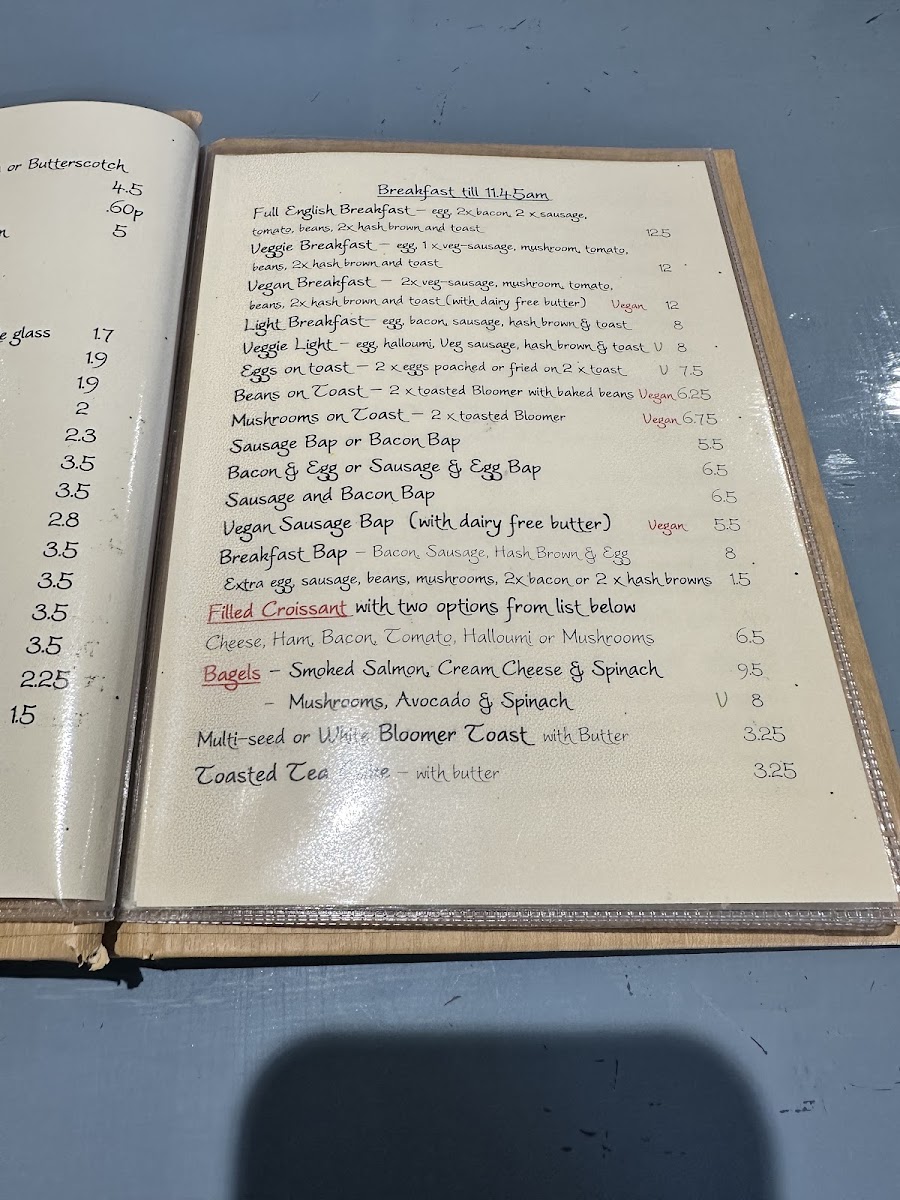 or Butterscotch
4.5
.60p
5
e glass 1.7
1.9
1.9
2
2.3
3.5
3.5
2.8
3.5
3.5
3.5
3.5
2.25
1.5
Breakfast till 11.45am
Full English Breakfast – egg, 2x bacon, 2 x sausage,
tomato, beans, 2x hash brown and toast 12.5
Veggie Breakfast – egg, 1 x veg-sausage, mushroom, tomato,
beans, 2x hash brown and toast 12
Vegan Breakfast – 2x veg-sausage, mushroom, tomato,
beans, 2x hash brown and toast (with dairy free butter) Vegan 12
Light Breakfast – egg, bacon, sausage, hash brown & toast 8
Veggie Light – egg, halloumi, Veg sausage, hash brown & toast V 8
Eggs on toast – 2 x eggs poached or fried on 2 x toast V 7.5
Beans on Toast – 2 x toasted Bloomer with baked beans Vegan 6.25
Mushrooms on Toast – 2 x toasted Bloomer Vegan 6.75
Sausage Bap or Bacon Bap 5.5
Bacon & Egg or Sausage & Egg Bap 6.5
Sausage and Bacon Bap 6.5
Vegan Sausage Bap (with dairy free butter) Vegan 5.5
Breakfast Bap – Bacon, Sausage, Hash Brown & Egg 8
Extra egg, sausage, beans, mushrooms, 2x bacon or 2 x hash browns 1.5
Filled Croissant with two options from list below
Cheese, Ham, Bacon, Tomato, Halloumi or Mushrooms 6.5
Bagels – Smoked Salmon, Cream Cheese & Spinach 9.5
– Mushrooms, Avocado & Spinach V 8
Multi-seed or White Bloomer Toast with Butter 3.25
Toasted Tea – with butter 3.25